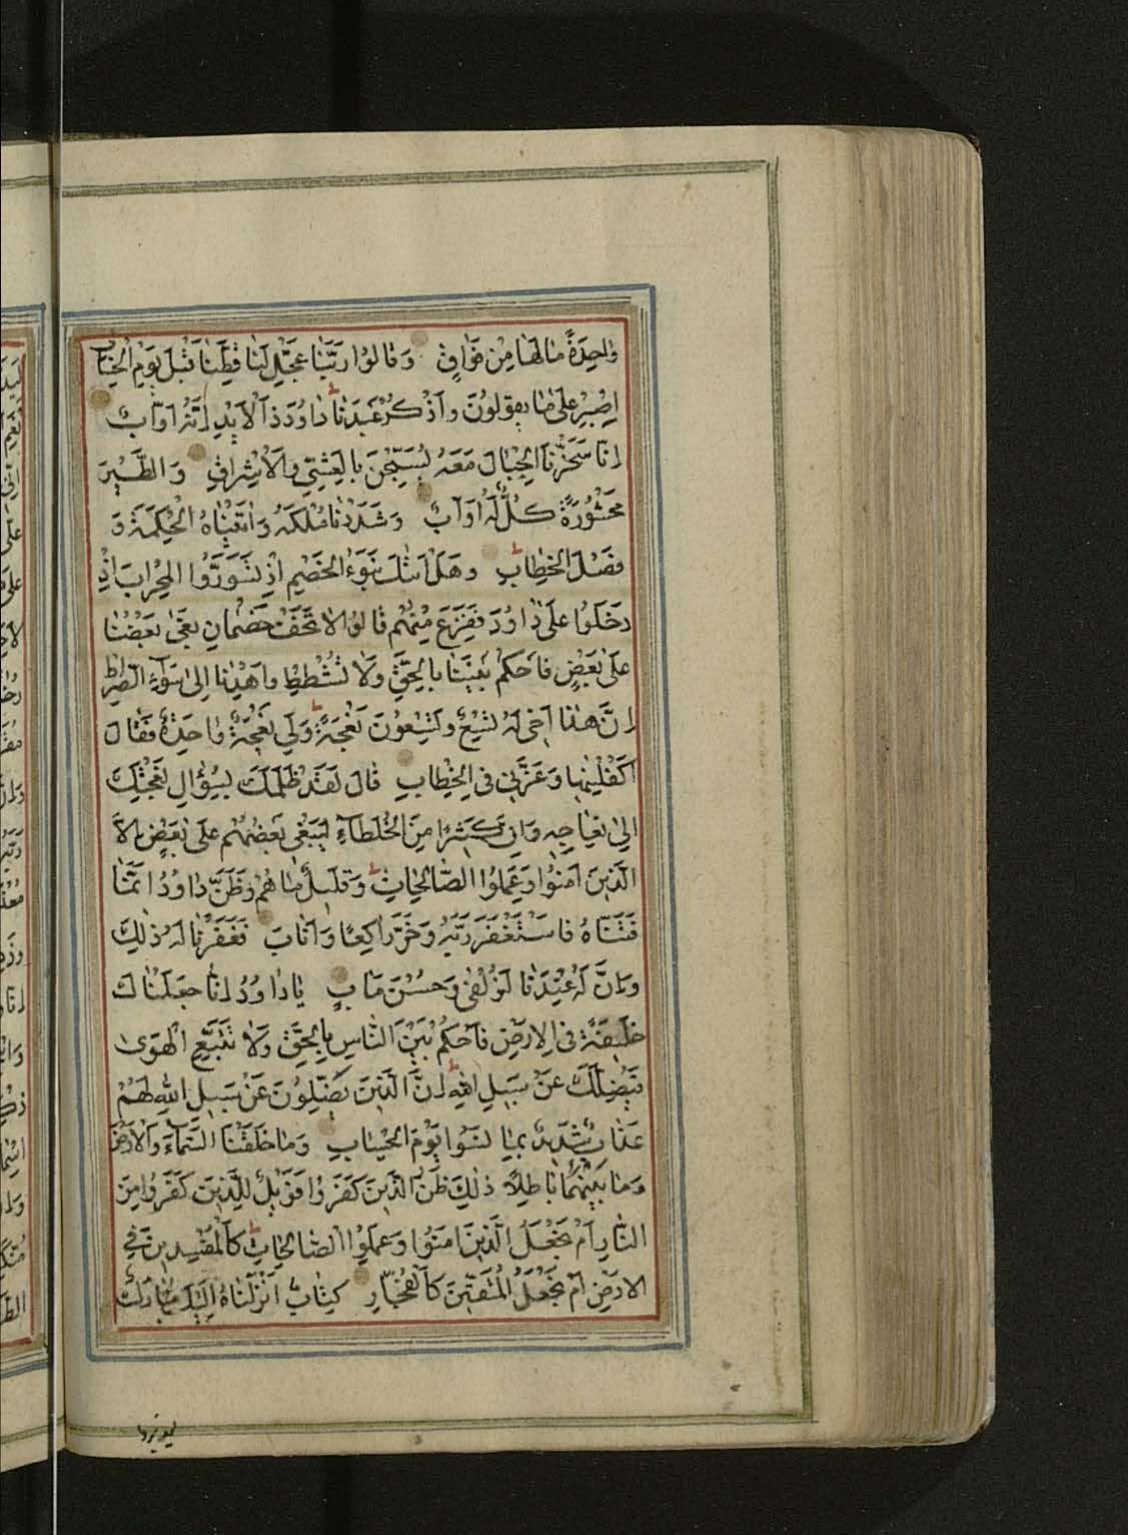 وٰاحِدَةً مٰا لَهٰا مِنْ فَوٰاقٍ وَقٰالُوا رَبَّنٰا عَجِّلْ لَنٰا قِطَّنٰا قَبْلَ يَوْمِ الْحِسٰابِ
اِصْبِرْ عَلىٰ مٰا يَقُولُونَ وَاذْكُرْ عَبْدَنٰا دٰاوُدَ ذَا الْاَيْدِ اِنَّهُ اَوّٰابٌ
اِنّٰا سَخَّرْنَا الْجِبٰالَ مَعَهُ يُسَبِّحْنَ بِالْعَشِيِّ وَالْاِشْرٰاقِ وَالطَّيْرَ
مَحْشُورَةً كُلٌّ لَهُ اَوّٰابٌ وَشَدَدْنٰا مُلْكَهُ وَاٰتَيْنٰاهُ الْحِكْمَةَ وَ
فَصْلَ الْخِطٰابِ وَهَلْ اَتٰكَ نَبَؤُا الْخَصْمِ اِذْ تَسَوَّرُوا الْمِحْرٰابَ اِذْ
دَخَلُوا عَلىٰ دٰاوُدَ فَفَزِعَ مِنْهُمْ قٰالُوا لاٰ تَخَفْ خَصْمٰانِ بَغىٰ بَعْضُنٰا
عَلىٰ بَعْضٍ فَاحْكُمْ بَيْنَنٰا بِالْحَقِّ وَلاٰ تُشْطِطْ وَاهْدِنٰا اِلىٰ سَوٰاءِ الصِّرٰاطِ
اِنَّ هٰذٰا اَخِي لَهُ تِسْعٌ وَتِسْعُونَ نَعْجَةً وَلِيَ نَعْجَةٌ وٰاحِدَةٌ فَقٰالَ
اَكْفِلْنِيهٰا وَعَزَّنِي فِي الْخِطٰابِ قٰالَ لَقَدْ ظَلَمَكَ بِسُؤٰالِ نَعْجَتِكَ
اِلىٰ نِعٰاجِهِ وَاِنَّ كَثِيرًا مِنَ الْخُلَطٰاءِ لَيَبْغِي بَعْضُهُمْ عَلىٰ بَعْضٍ اِلاَّ
الَّذِينَ اٰمَنُوا وَعَمِلُوا الصّٰالِحٰاتِ وَقَلِيلٌ مٰا هُمْ وَظَنَّ دٰاوُدُ اَنَّمٰا
فَتَنّٰاهُ فَاسْتَغْفَرَ رَبَّهُ وَخَرَّ رٰاكِعًا وَاَنٰابَ فَغَفَرْنٰا لَهُ ذٰلِكَ
وَاِنَّ لَهُ عِنْدَنٰا لَزُلْفىٰ وَحُسْنَ مَاٰبٍ يٰا دٰاوُدُ اِنّٰا جَعَلْنٰاكَ
خَلِيفَةً فِي الْاَرْضِ فَاحْكُمْ بَيْنَ النّٰاسِ بِالْحَقِّ وَلاٰ تَتَّبِعِ الْهَوىٰ
فَيُضِلَّكَ عَنْ سَبِيلِ اللّٰهِ اِنَّ الَّذِينَ يَضِلُّونَ عَنْ سَبِيلِ اللّٰهِ لَهُمْ
عَذٰابٌ شَدِيدٌ بِمٰا نَسُوا يَوْمَ الْحِسٰابِ وَمٰا خَلَقْنَا السَّمٰاءَ وَالْاَرْضَ
وَمٰا بَيْنَهُمٰا بٰاطِلًا ذٰلِكَ ظَنُّ الَّذِينَ كَفَرُوا فَوَيْلٌ لِلَّذِينَ كَفَرُوا مِنَ
النّٰارِ اَمْ نَجْعَلُ الَّذِينَ اٰمَنُوا وَعَمِلُوا الصّٰالِحٰاتِ كَالْمُفْسِدِينَ فِي
الْاَرْضِ اَمْ نَجْعَلُ الْمُتَّقِينَ كَالْفُجّٰارِ كِتٰابٌ اَنْزَلْنٰاهُ اِلَيْكَ مُبٰارَكٌ
ليدبروا